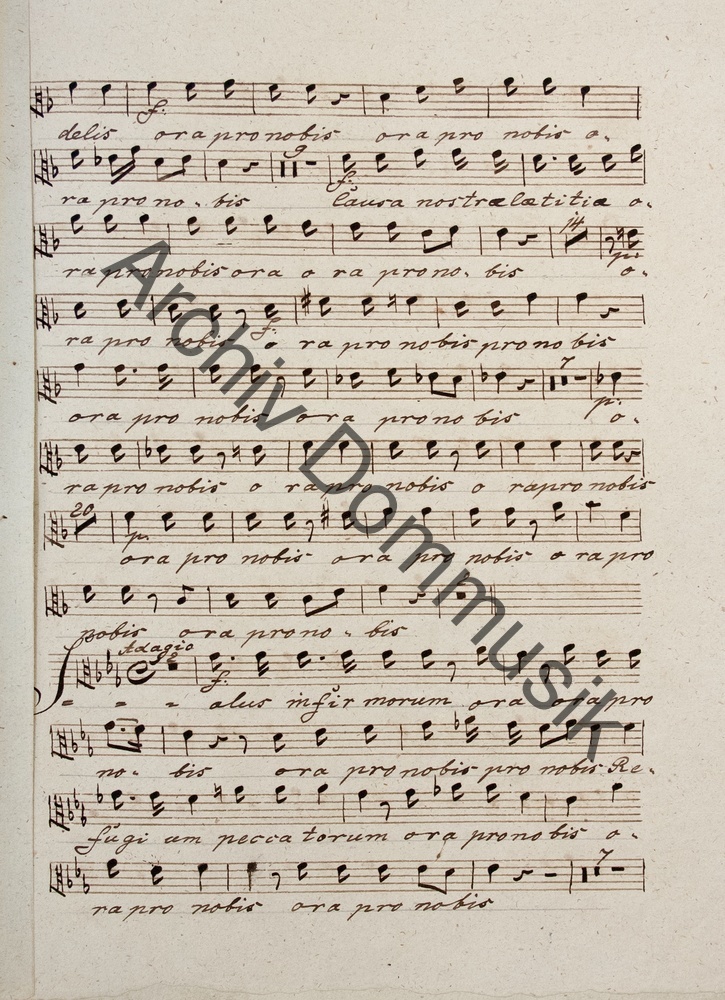 f.
delis ora pro nobis ora pro nobis o-
9
f.
ra pro no - bis Causa nostræ lætitiæ o-
14
p:
ra pro nobis ora o ra pro no - bis o-
f.
ra pro nobis o ra pro nobis pro no bis
7
p:
ora pro nobis ora pro no bis o-
ra pro nobis o ra pro nobis o ra pro nobis
20
p.
ora pro nobis ora pro nobis o ra pro
nobis ora pro no - bis
Adagio
2
f.
S - - - alus infir morum ora ora pro
no - bis ora pro nobis pro nobis Re-
fugi um pecca torum ora pro nobis o-
7
ra pro nobis ora pro nobis
Archiv Dommusik